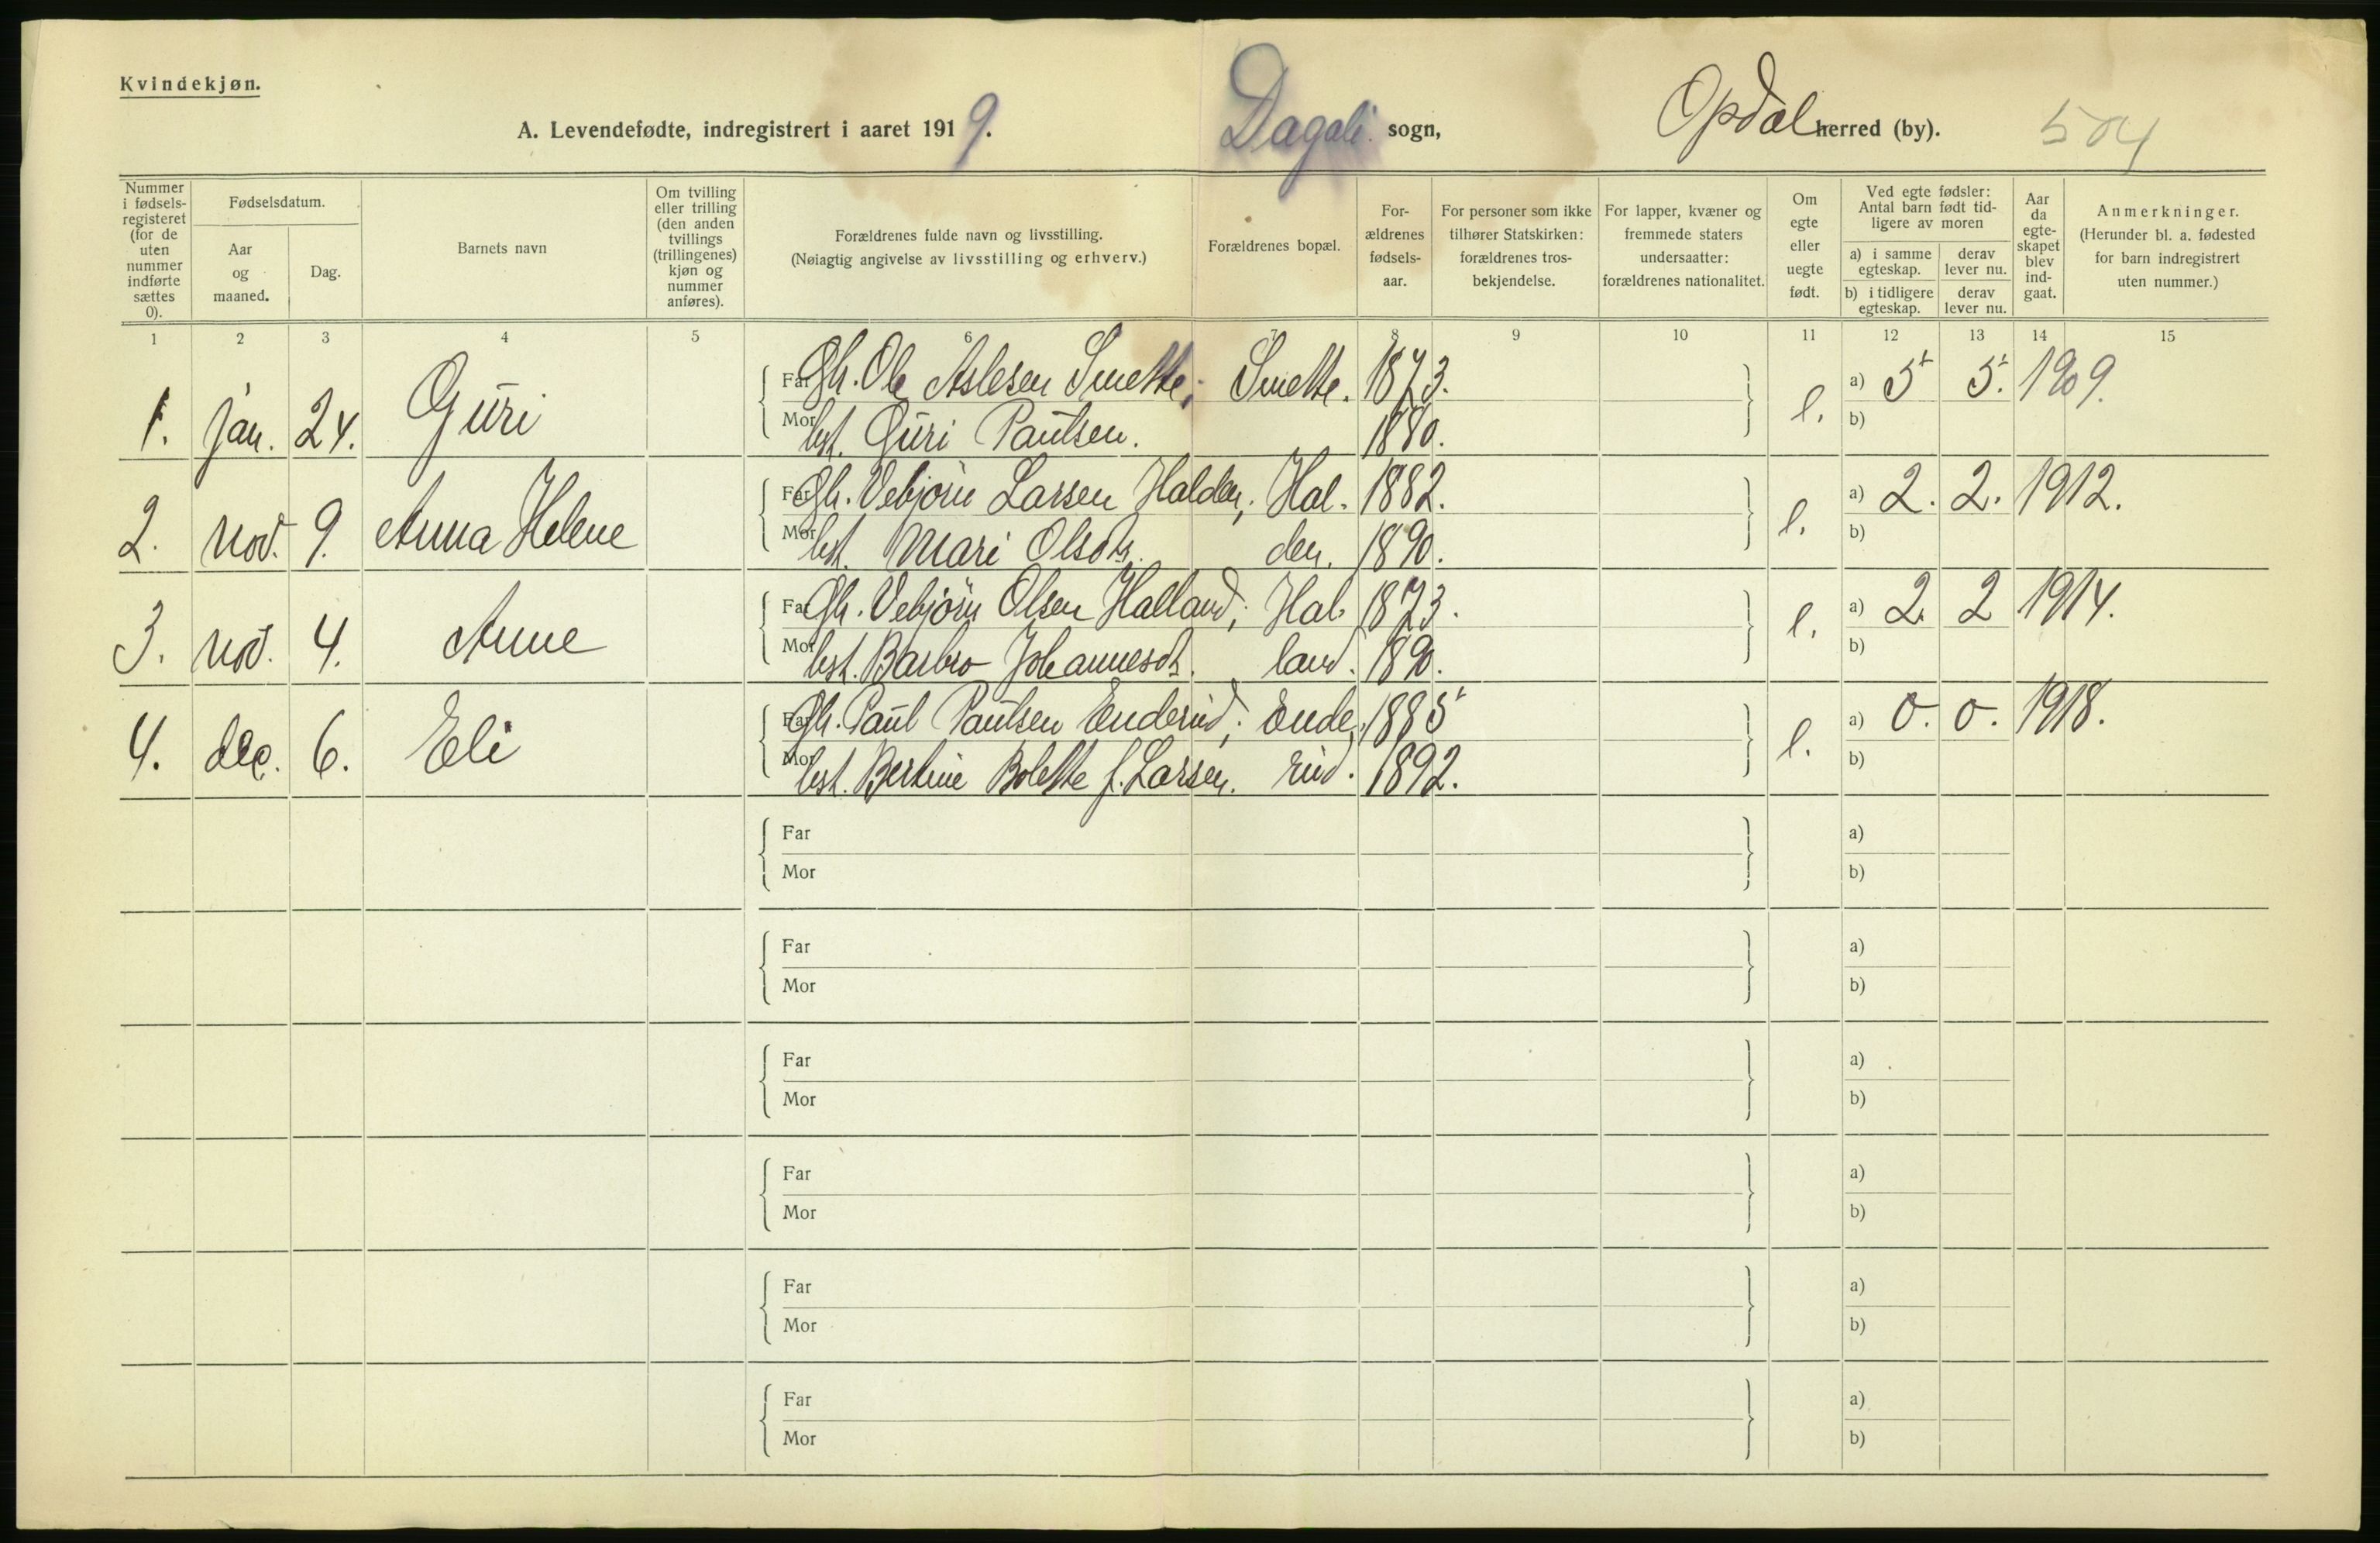 Kvindekjøn.
A. Levendefødte, indregistrert i aaret 1919. Dagali sogn, Opdal herred (by). 504
Nummer i fødselsregisteret (for de uten nummer indførte sættes 0).
Fødselsdatum.
Aar og maaned.
Dag.
Barnets navn
Om tvilling eller trilling (den anden tvillings (trillingenes) kjøn og nummer anføres).
Forældrenes fulde navn og livsstilling.
(Nøiagtig angivelse av livsstilling og erhverv.)
Forældrenes bopæl.
Forældrenes fødselsaar.
For personer som ikke tilhører Statskirken: forældrenes trosbekjendelse.
For lapper, kvæner og fremmede staters undersaatter: forældrenes nationalitet.
Om egte eller uegte født.
Ved egte fødsler: Antal barn født tidligere av moren
a) i samme egteskap. derav lever nu.
b) i tidligere egteskap. derav lever nu.
Aar da egteskapet blev indgaat.
Anmerkninger.
(Herunder bl. a. fødested for barn indregistrert uten nummer.)
1 2 3 4 5 6 7 8 9 10 11 12 13 14 15
Far Gh. Ole Aslesen Smette; Smette. 1873. a) 5 5. 1909.
1. jan. 24. Guri e.
Mor hst. Guri Paulsen. 1880. b)
Far Gh. Vebjörn Larsen Halden; Hal- 1882. a) 2. 2. 1912.
2. nov. 9. Anna Helene e.
Mor hst. Mari Olsdtr. den. 1890. b)
Far Gh. Vebjörn Olsen Halland; Hal- 1873. a) 2. 2 1914.
3. nov. 4. Anne e.
Mor hst. Barbro Johannesdt. land. 1890. b)
Far Gh. Paul Paulsen Enderud; Ende- 1885 a) 0. 0. 1918.
4. dec. 6. Eli e.
Mor hst. Bertine Bolette f. Larsen. rud. 1892. b)
Far a)
Mor b)
Far a)
Mor b)
Far a)
Mor b)
Far a)
Mor b)
Far a)
Mor b)
Far a)
Mor b)